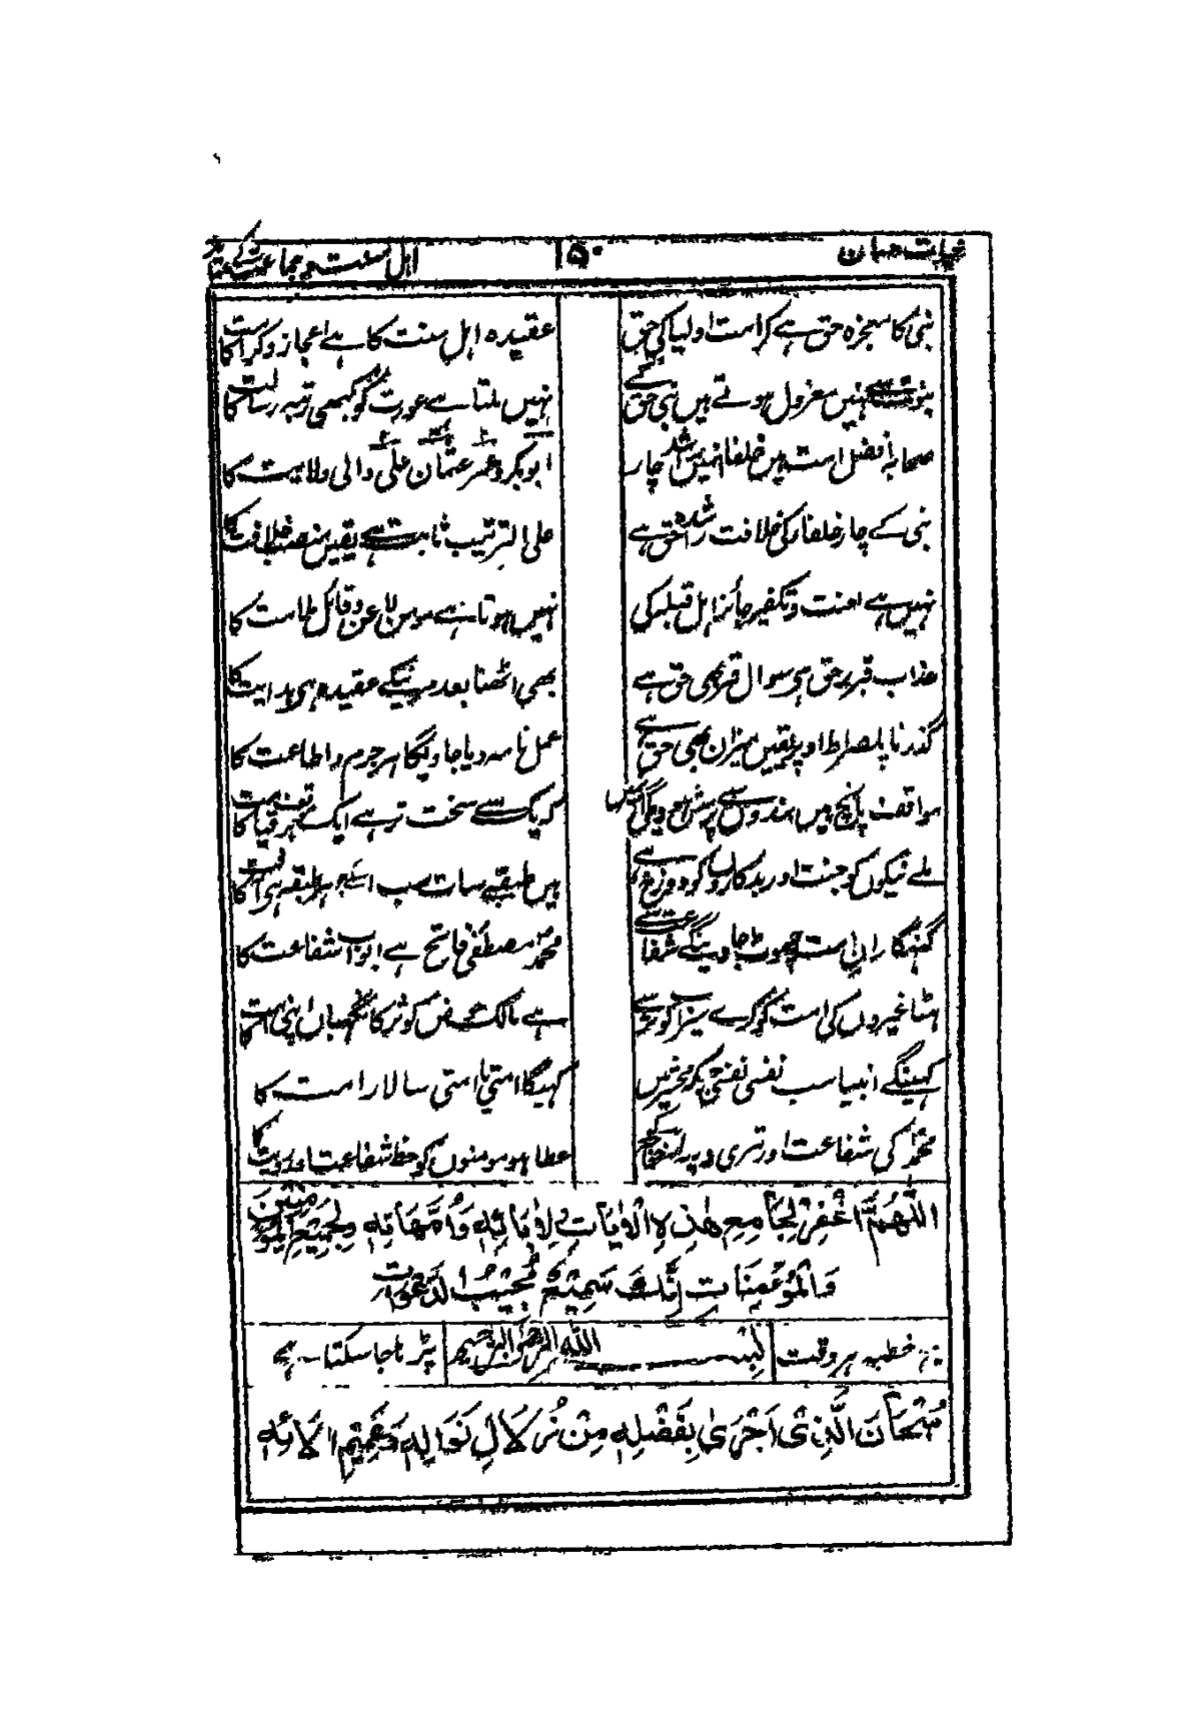 اہل سنت وجماعت کے عقائد ۱۵۰ نجات
نبی کا معجزہ حق ہے کرامت اولیا کی حق عقیدہ اہل سنت کا ہے اعجاز و کرامت کا
نبوت سے نہیں معزول ہوتے ہیں نبی حق کے نہیں ملتا ہے عورت کو کبھی رتبہ رسالت کا
صحابہ افضل امت ہیں خلفا انہیں راشد چار ابوبکر و عمر عثمان علی والی ولایت کا
نبی کے چار خلفاء کی خلافت راشدہ حق ہے علی الترتیب ثابت ہے یقین منصب خلافت کا
نہیں ہے لعنت و تکفیر جائز اہل قبلہ کی نہیں ہوتا ہے مومن لاعن و قائل ملامت کا
عذاب قبر برحق ہی سوال قبر بھی حق ہے بھی اٹھنا بعد مرنیکے عقیدہ ہی ہدایت کا
گذرنا پلصراط اوپر یقیں میزان بھی حق ہے عمل نامہ دیا جاویگا ہر جرم و اطاعت کا
مواقف پانچ ہیں بندوں سے پرسش ہوویگی کہ یک سے سخت تر ہے ایک قیامت کا
ملے نیکوں کو جنت اور بدکاروں کو دوزخ ہے ہیں طبقے سات سب اسکے ہر طبقہ ہی آفت کا
گنہگاران امت چھوٹ جاوینگے شفاعت سے محمد مصطفیٰ فاتح ہے ابواب شفاعت کا
ہٹا غیروں کی امت کو کرے سیراب کوثر سے ہے مالک حوض کوثر کا نگہبان اپنی امت کا
کہینگے انبیا سب نفسی نفسی محشر میں کہیگا امتی یا امتی سالار امت کا
محمد کی شفاعت اور تری دیدار عطا ہو مومنوں کو حظ شفاعت اور رویت کا
اَللّٰهُمَّ اغْفِرْ لِجَامِعِ هٰذِهِ الْاَبْيَاتِ لِاٰبَائِهٖ وَاُمَّهَاتِهٖ وَلِجَمِيْعِ الْمُؤْمِنِيْنَ
وَالْمُؤْمِنَاتِ اِنَّكَ سَمِيْعٌ مُجِيْبُ الدَّعَوَاتِ
یہ خطبہ ہر وقت بِسْمِ اللهِ الرَّحْمٰنِ الرَّحِيْمِ پڑہا جاسکتا ہے
سُبْحَانَ الَّذِيْ اَجْرٰى بِفَضْلِهٖ مِنْ زُلَالِ نَوَالِهٖ وَعَمِيْمِ اٰلَائِهٖ